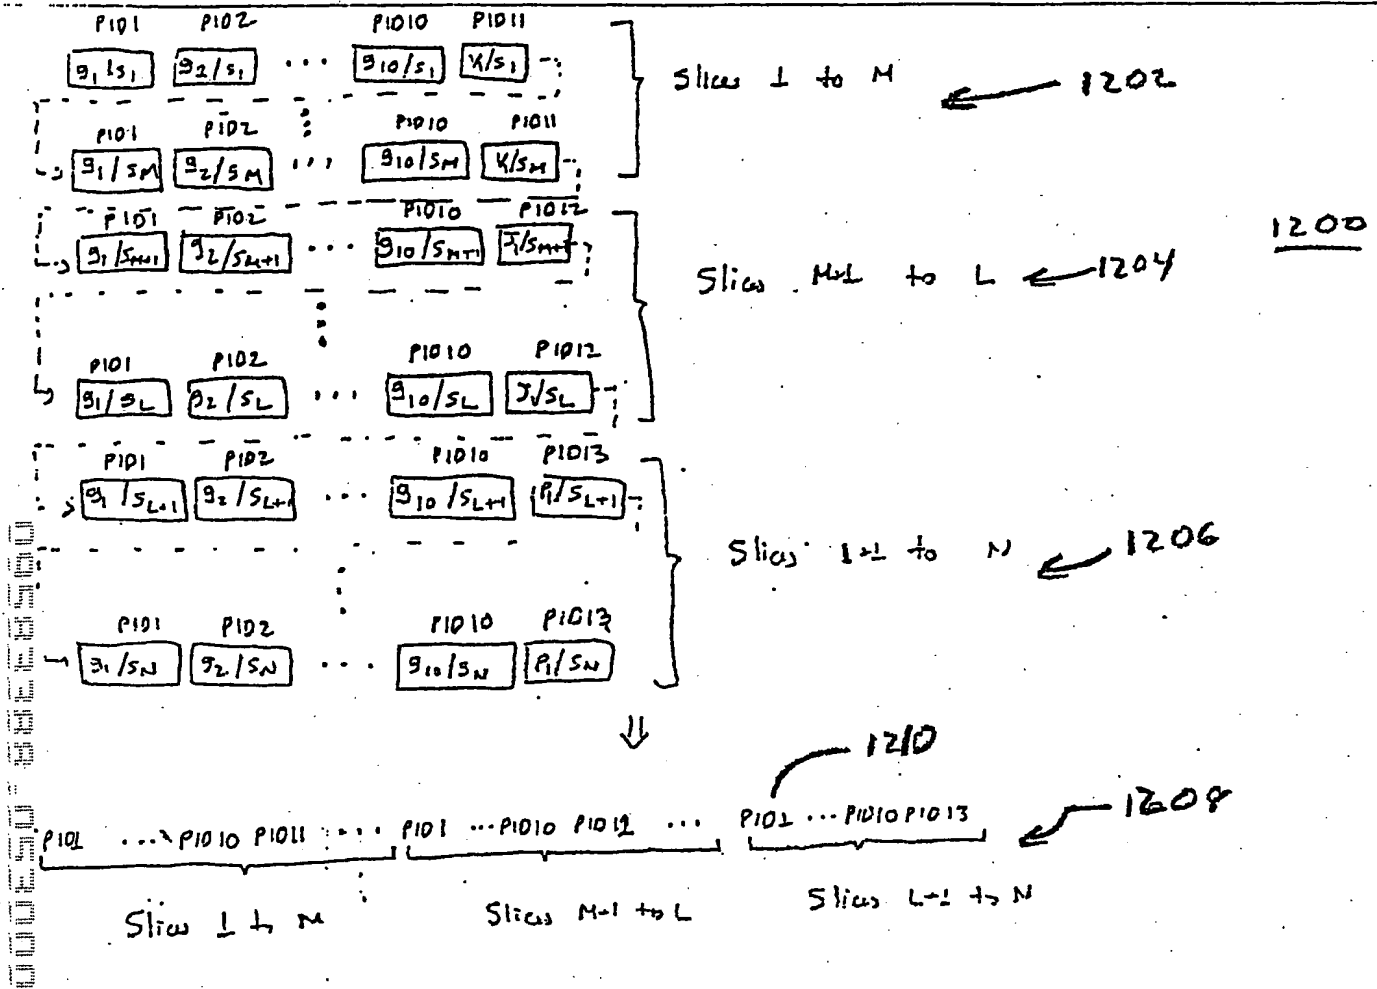 PID1 PID2 PID10 PID11
g1/s1 g2/s1 ... g10/s1 V1/s1 Slices 1 to M 1202
PID1 PID2 PID10 PID11
g1/SM g2/SM ... g10/SM V1/SM
PID1 PID2 PID10 PID12
g1/SM+1 g2/SM+1 ... g10/SM+1 J1/SM+1 1200
Slices M+1 to L 1204
PID1 PID2 PID10 PID12
g1/SL g2/SL ... g10/SL J1/SL
PID1 PID2 PID10 PID13
g1/SL+1 g2/SL+1 ... g10/SL+1 P1/SL+1
Slices L+1 to N 1206
PID1 PID2 PID10 PID13
g1/SN g2/SN ... g10/SN P1/SN
⇓
1210
1208
PID1 ... PID10 PID11 ... PID1 ... PID10 PID12 ... PID1 ... PID10 PID13
Slices 1 to M Slices M+1 to L Slices L+1 to N